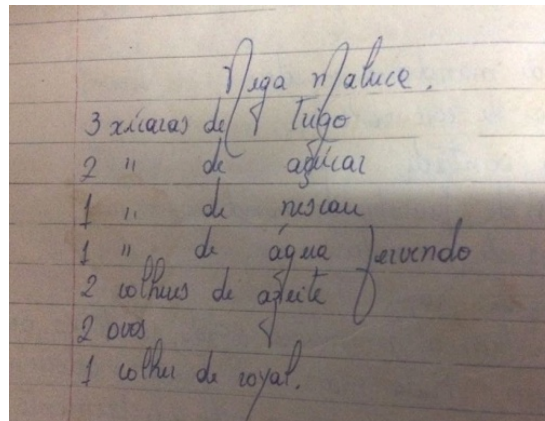 Nega Maluca.
3 xícaras de trigo
2 " de açúcar
1 " de nescau
1 " de água fervendo
2 colheres de azeite
2 ovos
1 colher de royal.